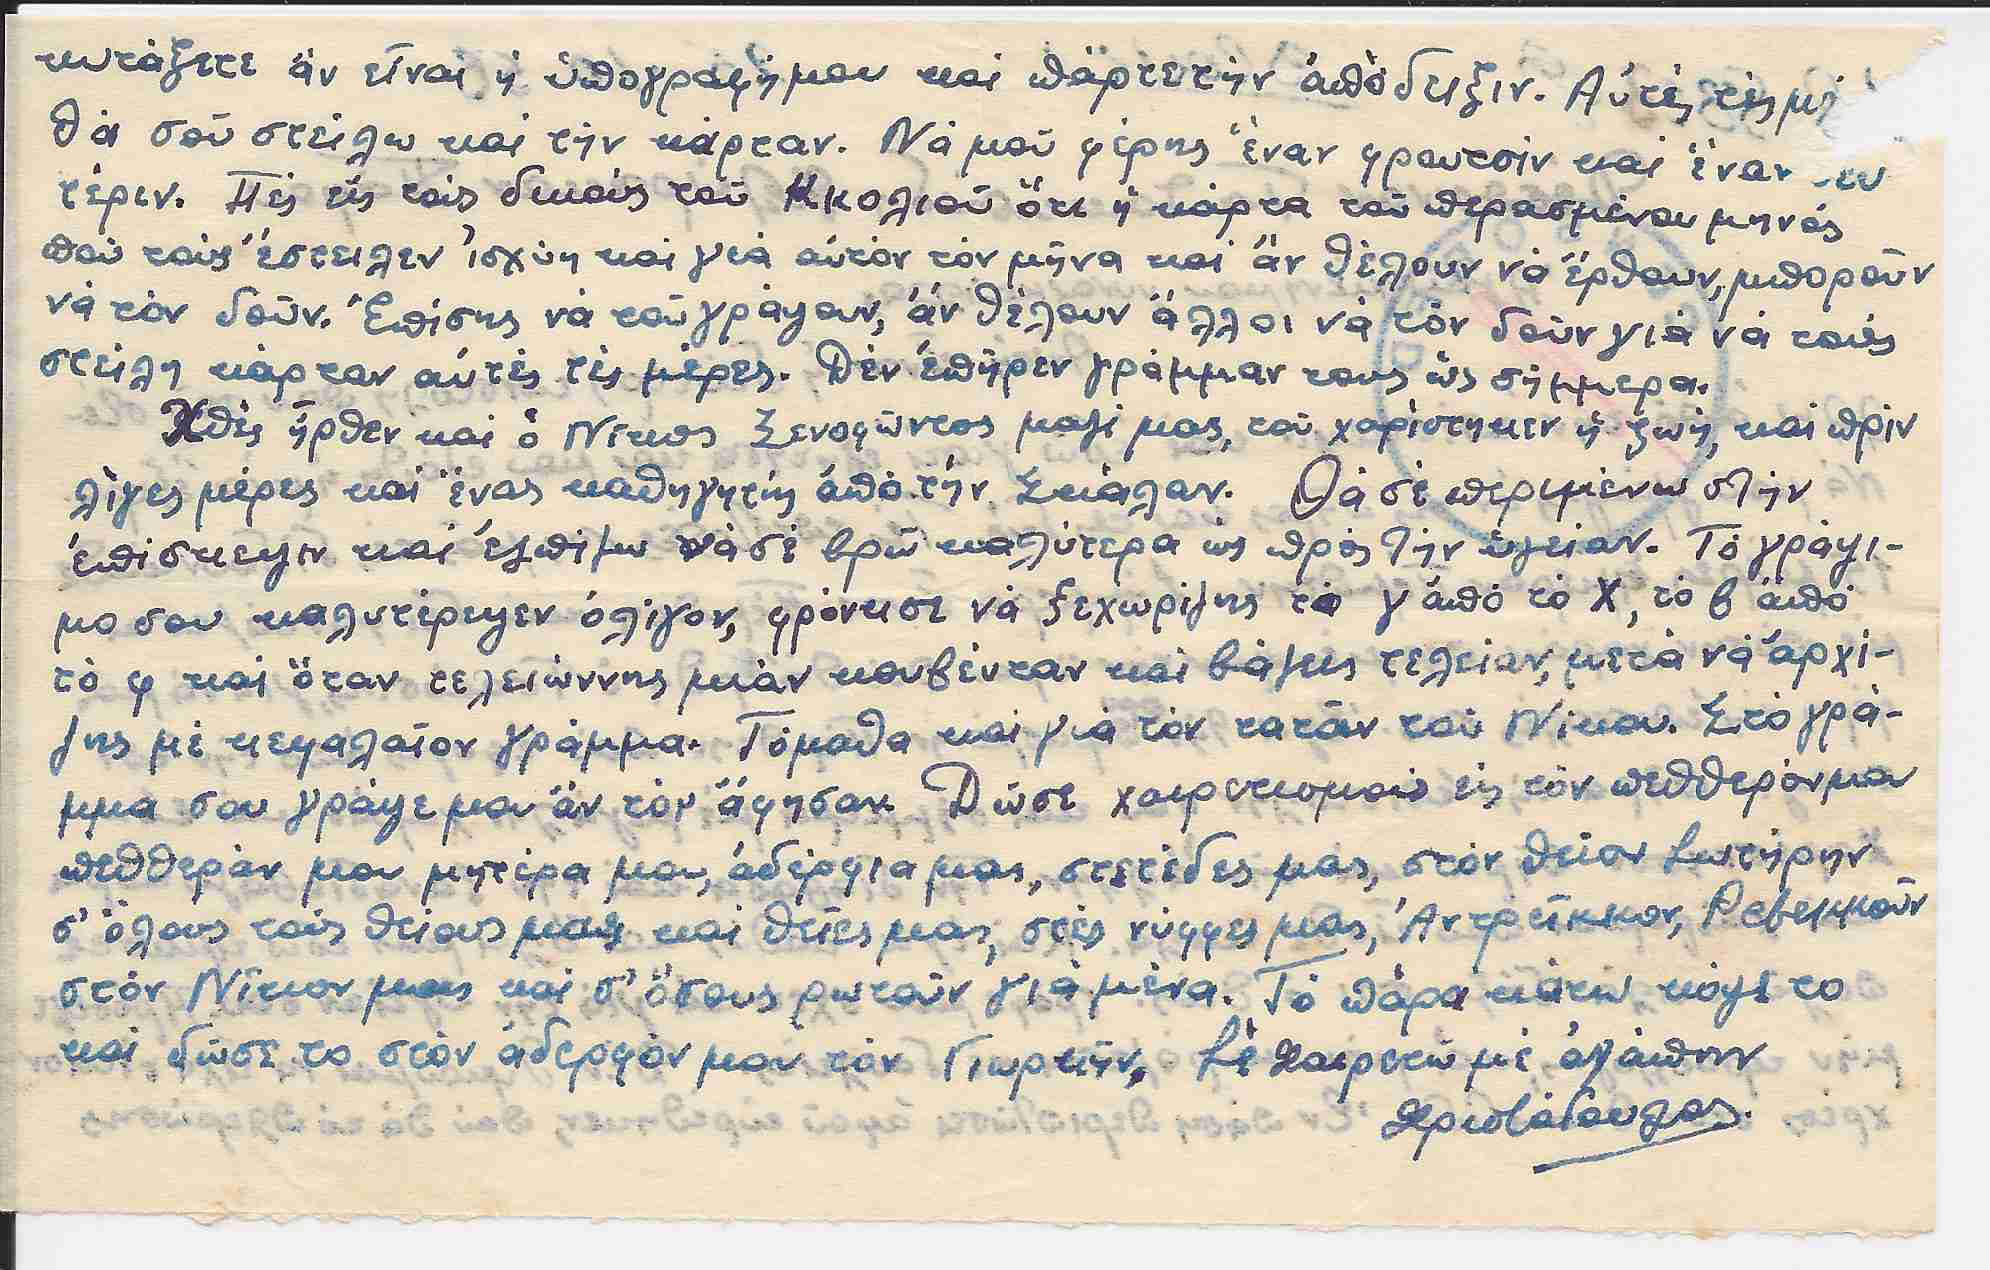 κυτάξετε ἄν εἶναι ἡ ὑπογραφή μου καί πάρτε τήν ἀπόδειξιν. Αὐτές τές
θά σοῦ στείλω καί τήν κάρταν. Νά μοῦ φέρης ἕναν φρουτσίν καί ἕναν
τέριν. Πές εἰς τούς δικούς τοῦ Κκολιοῦ ὅτι ἡ κάρτα τοῦ περασμένου μηνός
πού τούς ἔστειλεν ἰσχύη καί γιά αὐτόν τόν μῆνα καί ἄν θέλουν νά ἔρθουν, μποροῦν
νά τόν δοῦν. Ἐπίσης νά τοῦ γράψουν, ἄν θέλουν ἄλλοι νά τόν δοῦν γιά νά τούς
στείλη κάρταν αὐτές τές μέρες. Δέν ἐπῆρεν γράμμαν τους ὥς σήμμερα.
Χθές ἦρθεν καί ὁ Νῖκος Ξενοφῶντος μαζί μας, τοῦ χαρίστηκεν ἡ ζωή, καί πρίν
λίγες μέρες καί ἕνας καθηγητής ἀπό τήν Σκάλαν. Θά σέ περιμένω στήν
ἐπίσκεψιν καί ἐλπίζω νά σέ βρῶ καλύτερα ὡς πρός τήν ὑγείαν. Τό γράψι-
μο σου καλυτέρεψεν ὀλίγον, φρόντισε νά ξεχωρίζης τό γ ἀπό τό χ, τό β ἀπό
τό φ καί ὅταν τελειώννης μιάν κουβένταν καί βάζεις τελείαν, μετά νά ἀρχί-
ζης μέ κεφαλαῖον γράμμα. Τόμαθα καί γιά τόν τατᾶν τοῦ Νίκου. Στό γρά-
μμα σου γράψε μου ἄν τόν ἄφησαν. Δῶσε χαιρετισμούς εἰς τόν πεθθερόν μου
πεθθεράν μου μητέρα μου, ἀδέρφια μας, στετέδες μας, στόν θεῖον Σωτήρην
σ' ὅλους τούς θείους μας καί θεῖες μας, στές νύφφες μας, Ἀντρίκκον, Ρεβεκκοῦν
στόν Νῖκον μας καί σ' ὅσους ρωτοῦν γιά μένα. Τό πάρα κάτω κόψε το
καί δῶσε το στόν ἀδερφόν μου τόν Γιωρκῆν, Σέ χαιρετῶ μέ ἀγάπην
Χριστόδουλος.